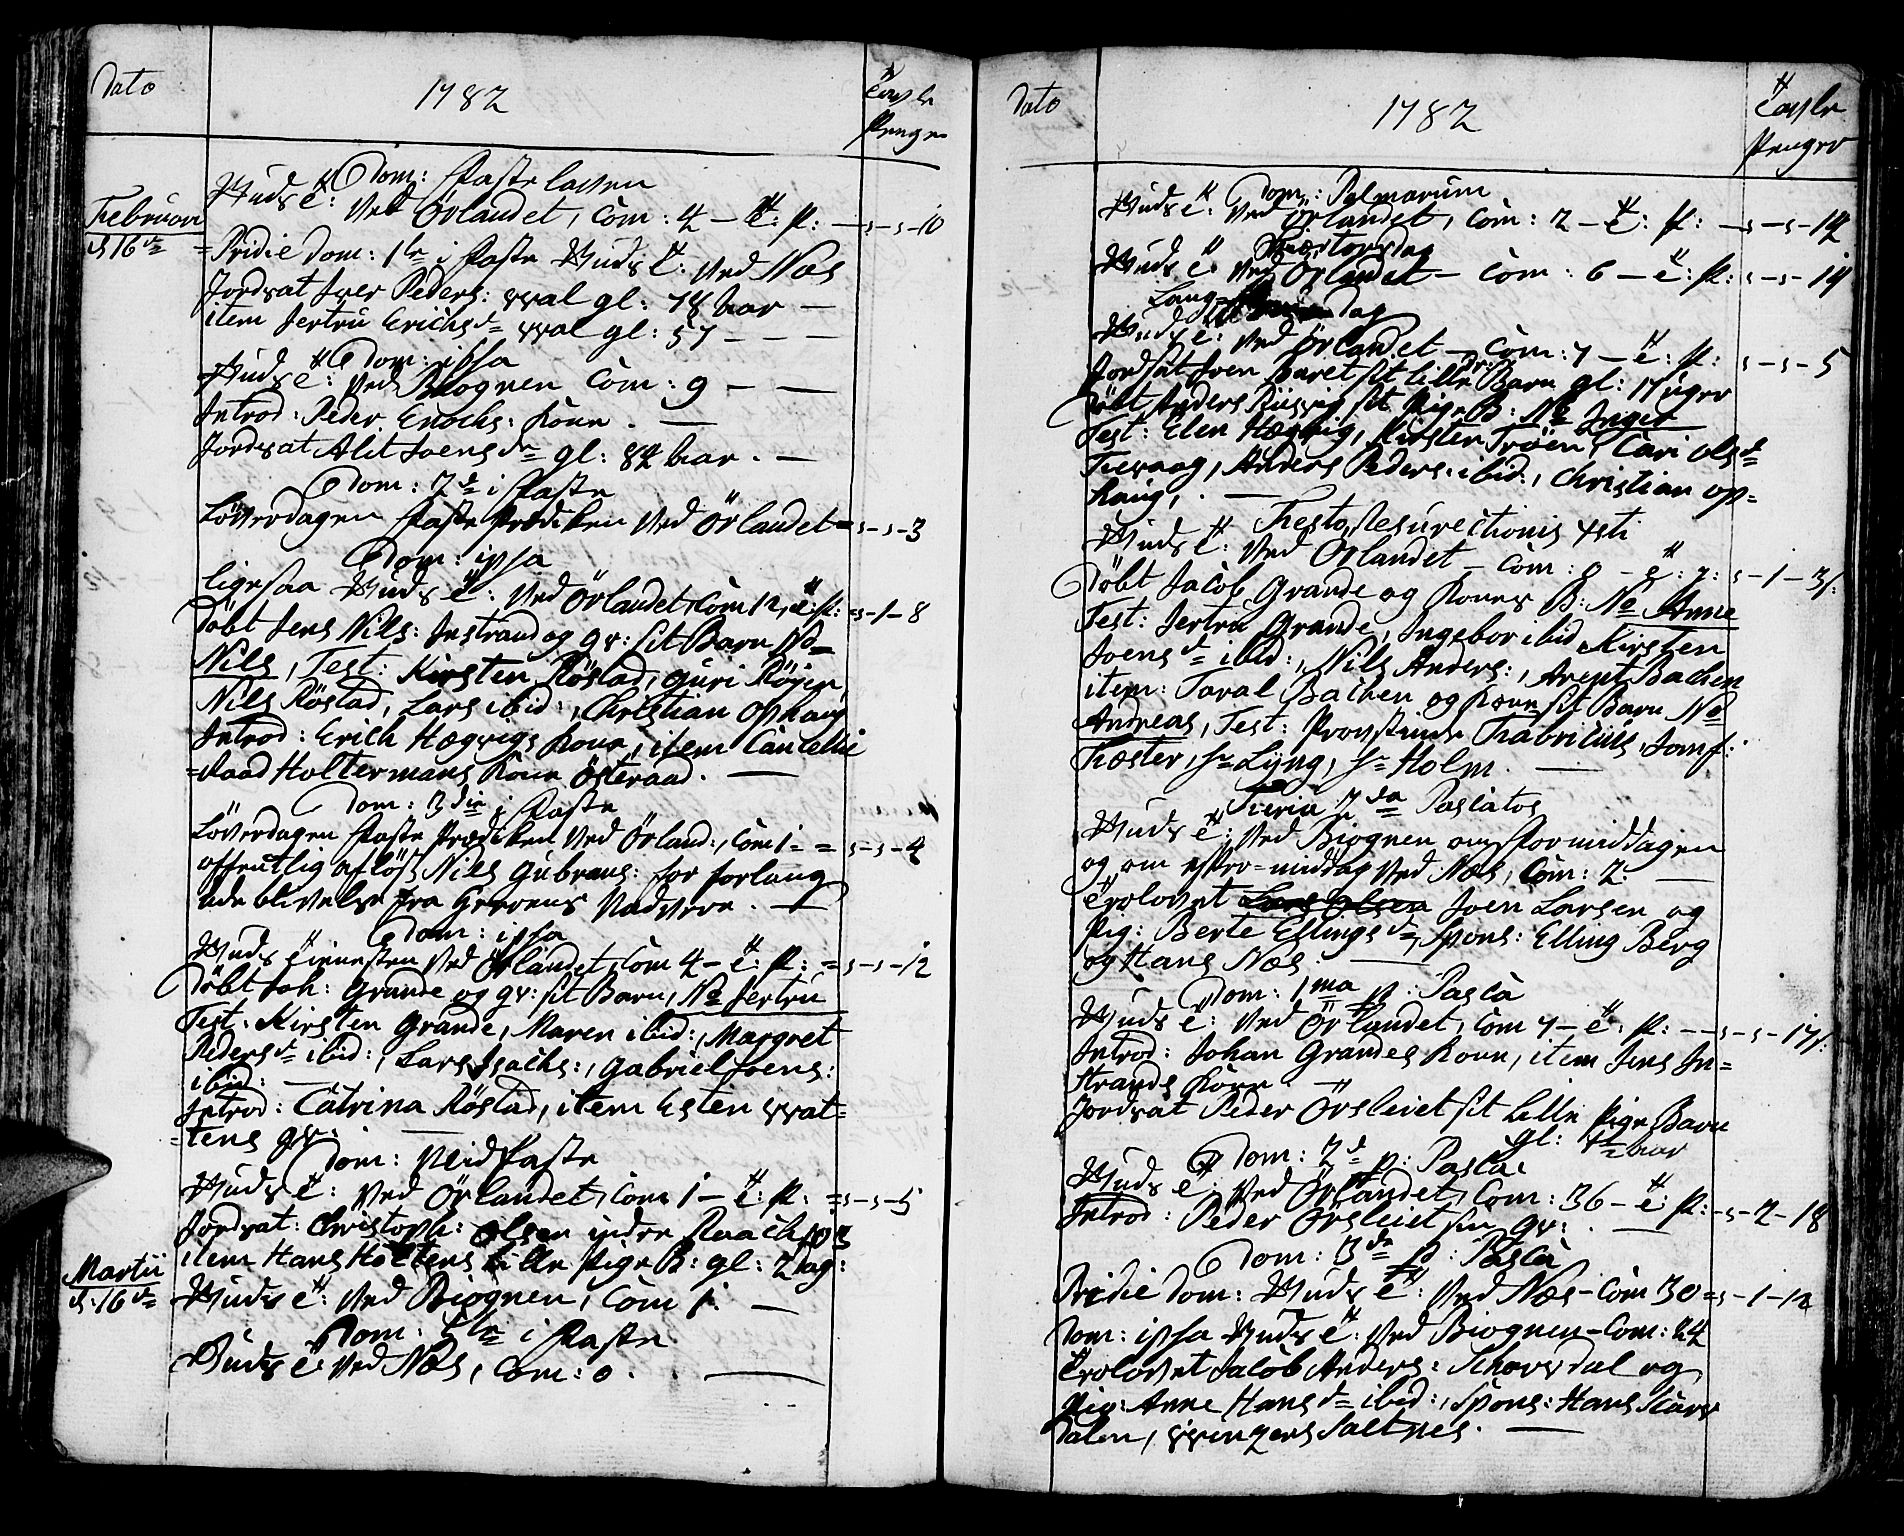 Dato
1782
Tavle
Penge
Dom: Faste laven
Februari
d 16de
Guds t: Ved Örlandet, Com: 4 - t: P: -,-,-10
Pridie Dom: 1te i Faste Guds t: Ved Næs
Jordsat Iver Peders: gl: 78 aar -
item Jertru Erichsd gl: 57 - - -
Dom: ipsa
Guds t: Ved Biognen Com: 9 - -
Introd: Peder Enochs: Kone. -
Jordsat Alit Joensdr gl: 84 aar. -
Dom: 2de i Faste
Löverdagen Faste Prædiken Ved Örlandet =,-,-3
Dom: ipsa
ligesaa Guds t: Ved Örlandet Com 12, t: P: =,-1-8
Döbt Jens Nils: Instrand og qv: sit Barn No=
Nils, Test: Kirsten Röstad, Guri Röjen,
Nils Röstad, Lars ibid:, Christian Ophaug
Introd: Erich Hægvigs Kone, item Cancellie
=Raad Holtermans Kone Österaad. -
Dom: 3die i Faste
Löverdagen Faste Prædiken Ved Örland:, Com 1- =,-,-4
offentlig aflöst Nils Gubrans: for forlang
ude blivelse fra Herrens Nadvere. -
Dom: ipsa
Guds tienesten Ved Örlandet, Com 4 - t: P: =,-,-12
Döbt Joh: Grande og qv: sit Barn, No Jertru
Test: Kirsten Grande, Maren ibid:, Margret
Pedersd ibid:, Lars Isachs:, Gabriel Joens:
ibid: -
Introd: Catrina Röstad, item Esten
=tens qv: -
Dom: Midfaste
Guds t: Ved Örlandet, Com 1 - t: P: =,-,-5
Jordsat: Christoph: Olsen indre
item Hans Holtens Lille Pige B: gl: 2 dag:
Martii
d: 16de
Guds t: Ved Biognen, Com 1. -
Dom: 5te i Faste
Guds t: Ved Næs, Com: 0. -
Dato
1782
Tavle
Penger
Dom: Palmarum
Guds t: Ved Örlandet, Com: 2 - t: P: -,-,-14
Skiertorsdag
Guds t: Ved Örlandet - Com: 6 - t: P: ,-,-14
Lang= dag
Guds t: Ved Örlandet - Com: 7 - t: P: ,-,-5
Jordsat Joen sit Lille Barn gl: 17 uger
Döbt Anders sit Pige B: No Inger
Test: Elen Hægvig, Kirsten Tröen, Cari Olsd
Anders Peders: ibid:, Christian op=
haug, -
Festo Resurectionis Xsti
Guds t: Ved Örlandet - Com: 8 - t: P: ,-1-3
Döbt Jacob Grande og Kones B: No Anne
Test: Jertru Grande, Ingebor ibid, Kirsten
Joensd ibid:, Nils Anders:, Arent Bachen
item: Taral Bachen og Kone sit Barn No
Andreas, Test: Provstinde Fabricius, Jomf:
Fæster, Hr Lÿng, Hr Holm. -
Feria 2da Pascatos
Guds t: Ved Biognen om Formiddagen
og om efter=middag Ved Næs, Com: 2. -
Trolovet Lars Olsen Joen Larsen og
Pig: Berte Ellingsd, Spons: Elling Berg
og Hans Næs. -
Dom: 1ma p: Pasca
Guds t: Ved Örlandet, Com 7 - t: P: -,-,-17
Introd: Johan Grandes Kone, item Jens In=
strands Kone -
Jordsat Peder Örsleiet sit Lille Pige Barn
gl: aar
Dom: 2d p: Pasca
Guds t: Ved Örlandet, Com: 36 - t: P: -,-2-18
Introd: Peder Örsleiet sin qv: -
Dom: 3de p: Pasca
Pridie Dom: Guds t: Ved Næs - Com 30 =,-1-12
Dom: ipsa Guds t: Ved Biognen - Com: 24
Trolovet Jacob Anders: Schavsdal og
Pig: Anne Hansd ibid:, Spons: Hans
dalen, Saltnes. -